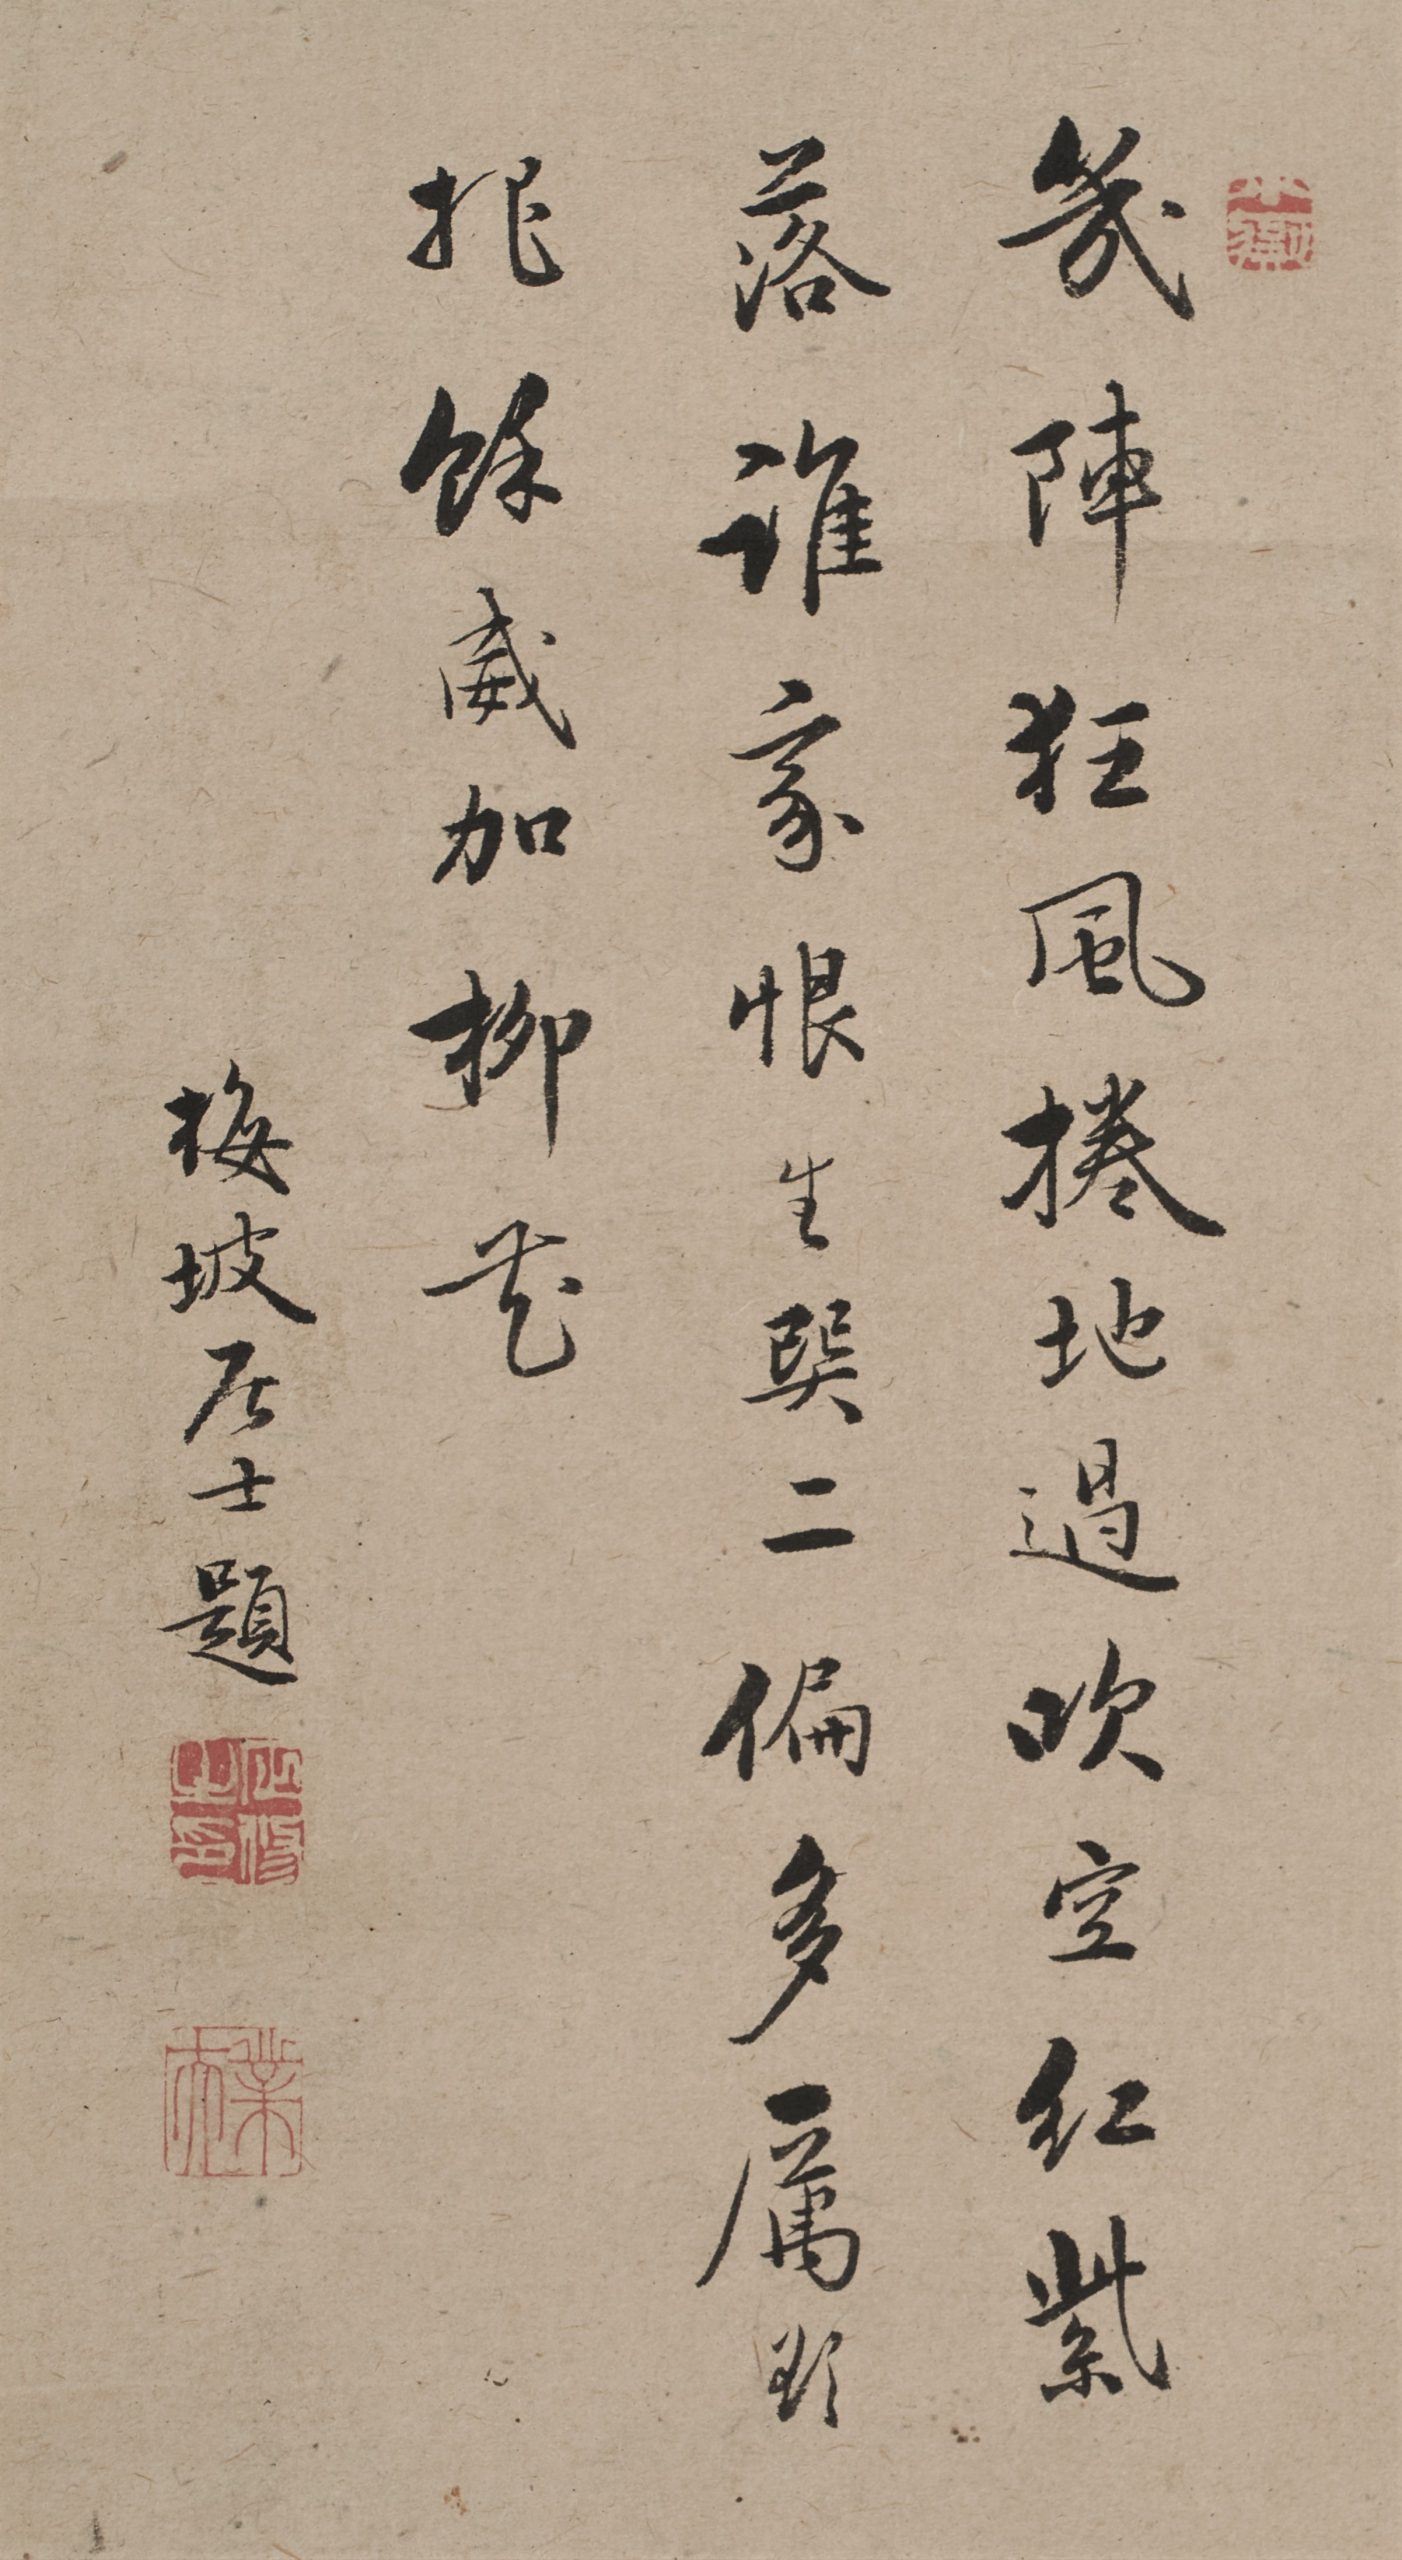 幾陣狂風捲地過吹空紅紫
落誰家恨生巽二偏多厲
把餘威加柳花
梅坡居士題